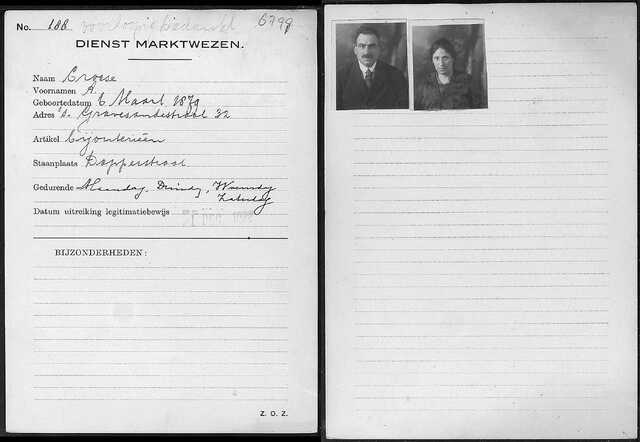 No. 188 voorlopig bedankt 6799
DIENST MARKTWEZEN.
Naam Crosse
Voornamen A.
Geboortedatum 6 Maart 1879
Adres 's Gravesandestraat 32
Artikel bijouterieën
Staanplaats Dapperstraat
Gedurende Maandag, Dinsdag, Woensdag
Zaterdag
Datum uitreiking legitimatiebewijs DEC
BIJZONDERHEDEN:
Z. O. Z.